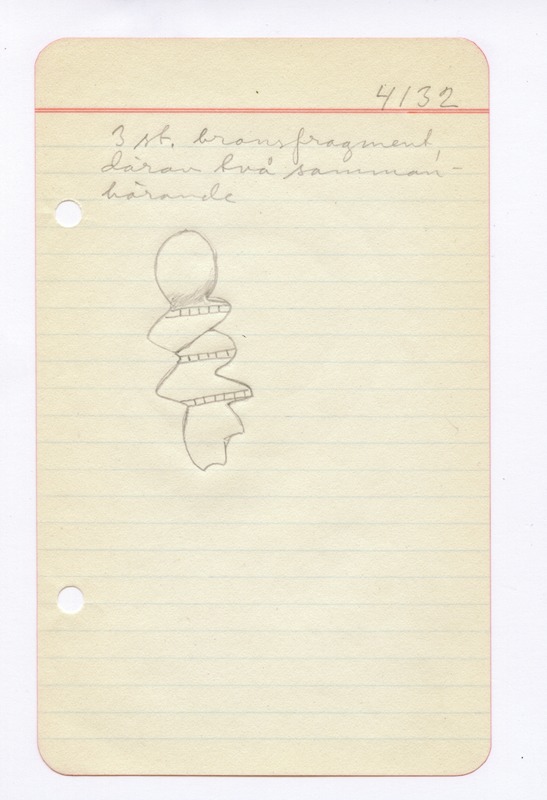 4132
3 st. bronsfragment,
därav två samman-
hörande